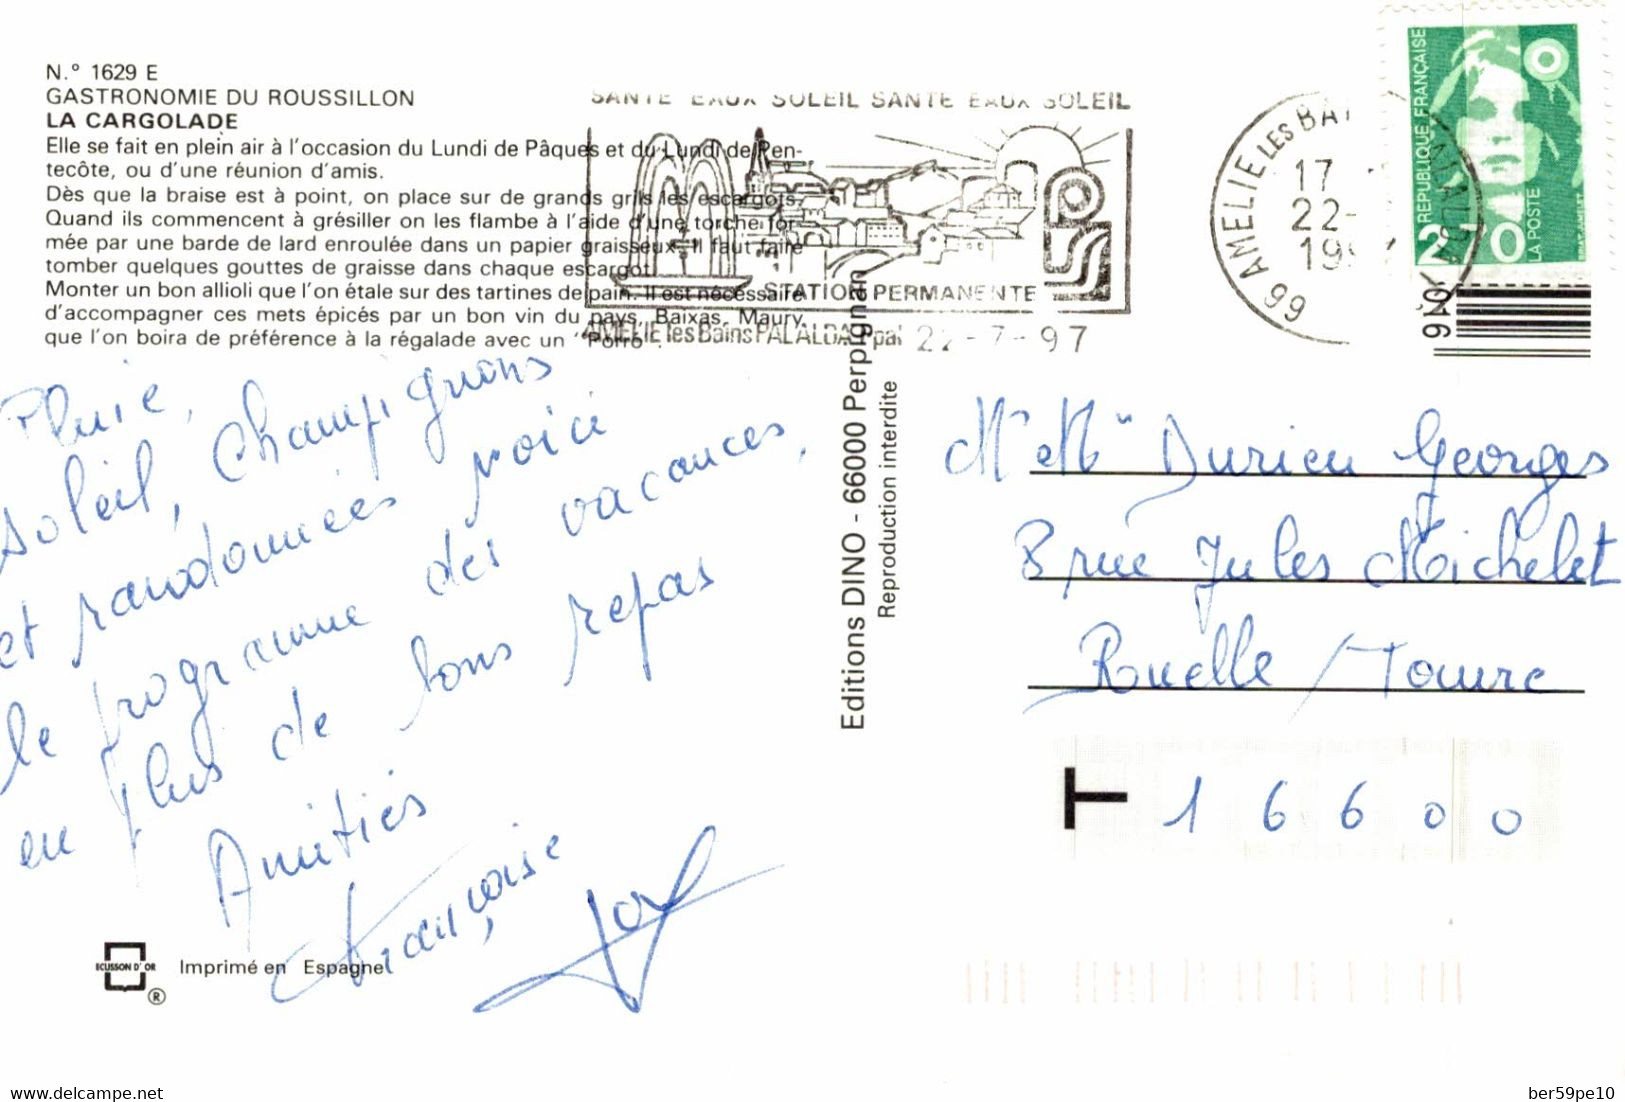 N.° 1629 E
GASTRONOMIE DU ROUSSILLON
LA CARGOLADE
Elle se fait en plein air à l'occasion du Lundi de Pâques et du Lundi de Pen-
tecôte, ou d'une réunion d'amis.
Dès que la braise est à point, on place sur de grands grils les escargots.
Quand ils commencent à grésiller on les flambe à l'aide d'une torche for-
mée par une barde de lard enroulée dans un papier graisseux. Il faut faire
tomber quelques gouttes de graisse dans chaque escargot.
Monter un bon allioli que l'on étale sur des tartines de pain. Il est nécessaire
d'accompagner ces mets épicés par un bon vin du pays, Baixas, Maury,
que l'on boira de préférence à la régalade avec un "Porro".
SANTE EAUX SOLEIL SANTE EAUX SOLEIL
STATION PERMANENTE
AMELIE les Bains PALALDA
22-7-97
66 AMELIE LES BAI
17
22-
199
REPUBLIQUE FRANÇAISE
2,70
LA POSTE
Pluie,
soleil, Champignons
et randonnées voici
le programme des vacances,
en plus de bons repas
Amitiés
Françoise
Editions DINO - 66000 Perpignan
Reproduction interdite
Mr et Mme Durieu Georges
8 rue Jules Michelet
Ruelle / Touvre
T 1 6 6 0 0
ECUSSON D'OR
®
Imprimé en Espagne
delcampe.net
ber59pe10